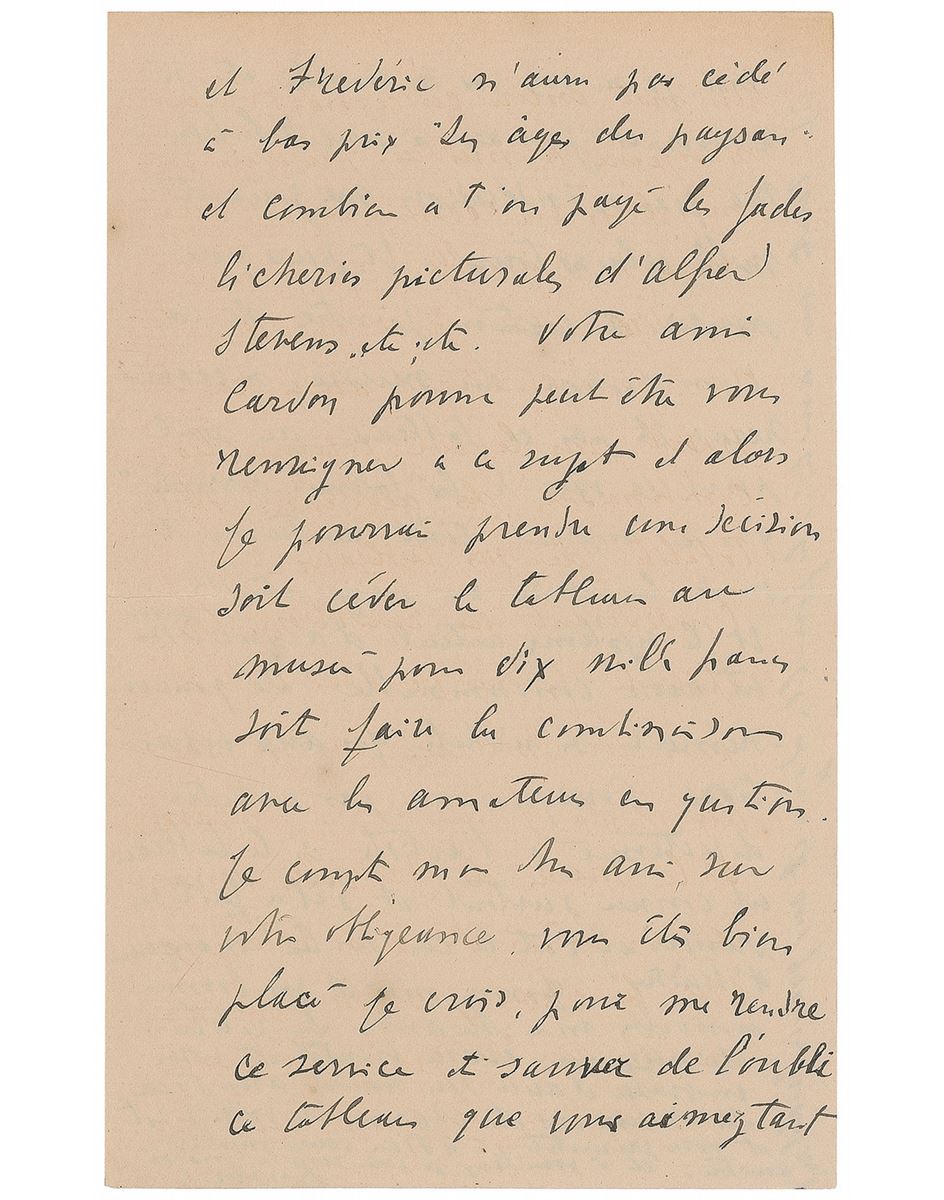 et Frédéric n'aura pas cédé
à bas prix "Les âges du paysan"
et combien a t'on payé les fades
licheries picturales d'Alfred
Stevens, etc; etc. Votre ami
Cardon pourra peut être vous
renseigner à ce sujet et alors
je pourrai prendre une décision
soit céder le tableau au
musée pour dix mille francs
soit faire la combinaison
avec les amateurs en question.
Je compte mon cher ami, sur
votre obligeance, vous êtes bien
placé je crois, pour me rendre
ce service et sauver de l'oubli
ce tableau que vous aimez tant